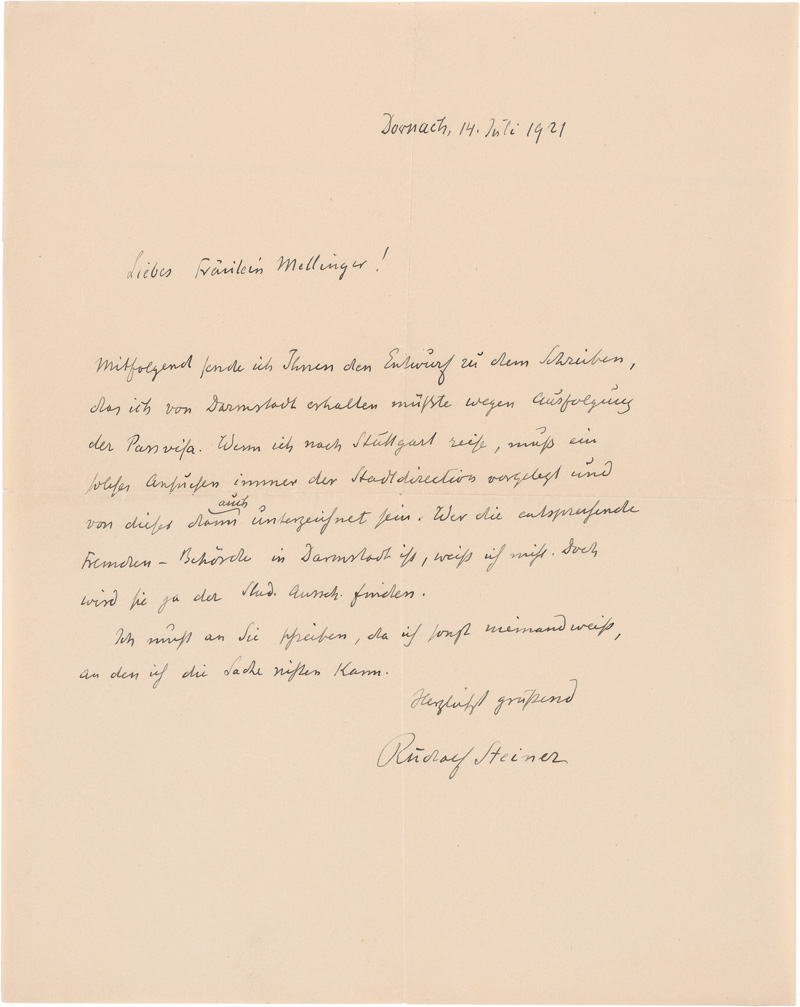 Dornach, 14. Juli 1921
Liebes Fräulein Mellinger!
Mitfolgend sende ich Ihnen den Entwurf zu dem Schreiben,
das ich von Darmstadt erhalten müßte wegen Ausfolgung
der Passvisa. Wenn ich nach Stuttgart reise, muß ein
solches Ansuchen immer der Stadtdirection vorgelegt und
auch
von dieser dann unterzeichnet sein. Wer die entsprechende
Fremden-Behörde in Darmstadt ist, weiß ich nicht. Doch
wird sie ja der Stud. Aussch. finden.
Ich muß an Sie schreiben, da ich sonst niemand weiß,
an den ich die Sache richten kann.
Herzlichst grüßend
Rudolf Steiner